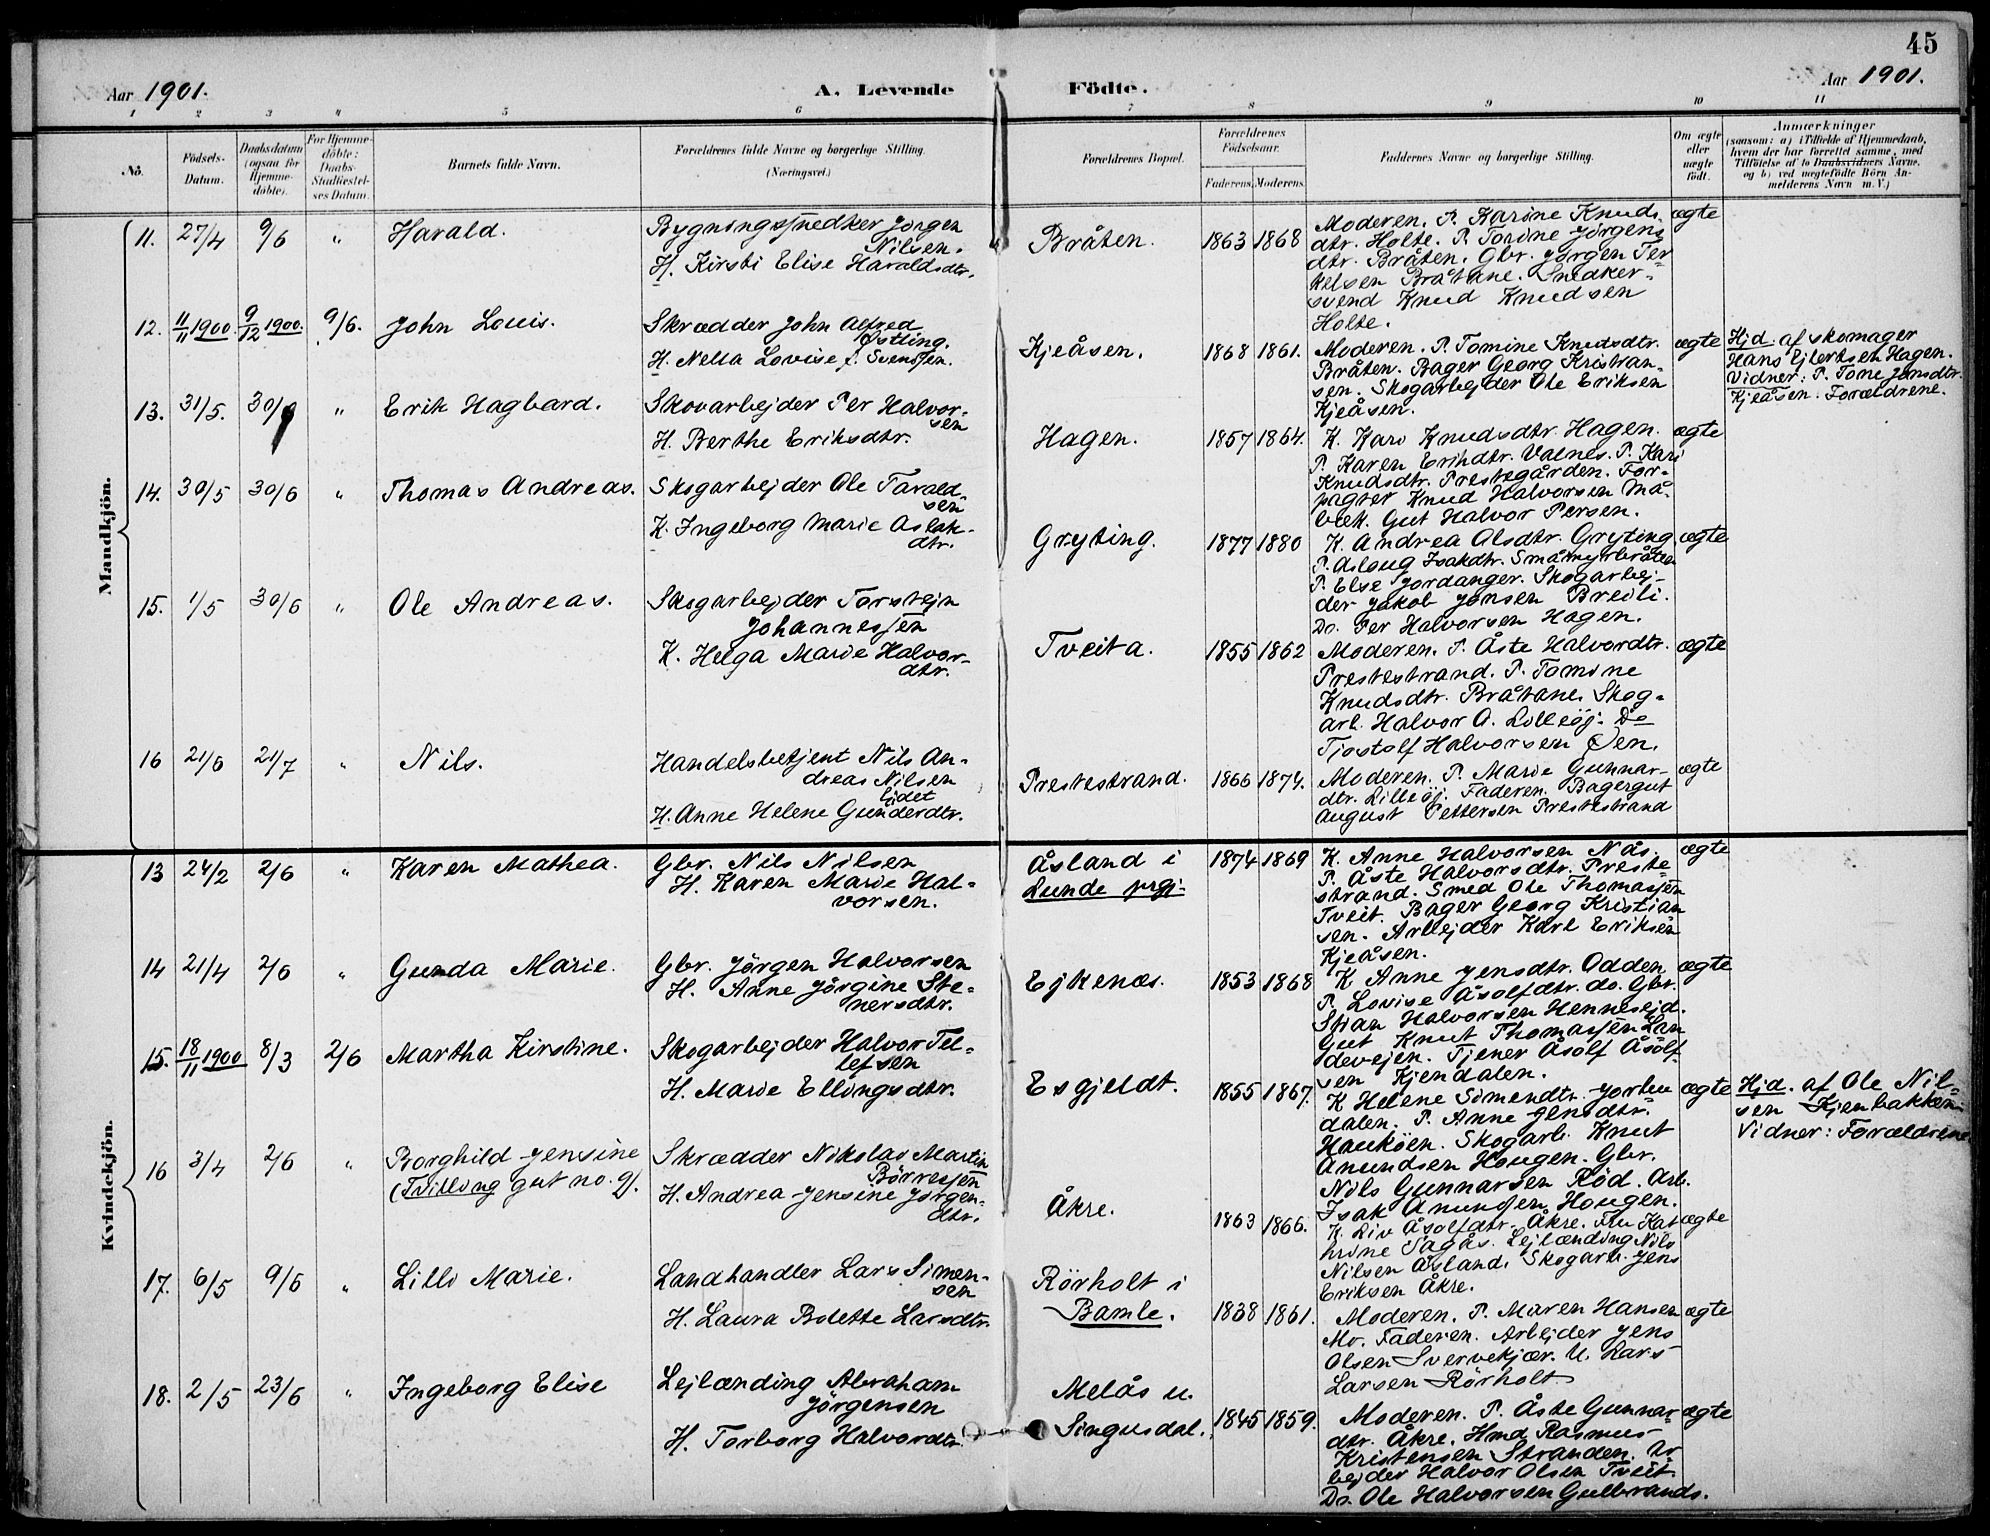 45
Aar 1901. A. Levende Födte. Aar 1901.
1 2 3 4 5 6 7 8 9 10 11
No. Födsels-Datum. Daabsdatum (ogsaa for Hjemme-döbte). For Hjemme-döbte: Daabs-Stadfæstel-ses Datum. Barnets fulde Navn. Forældrenes fulde Navne og borgerlige Stilling. (Næringsvei.) Forældrenes Bopæl. Forældrenes Födselsaar. Faderens. Moderens. Faddernes Navne og borgerlige Stilling. Om ægte eller uægte födt. Anmærkninger (saasom: a) i Tilfælde af Hjemmedaab, hvem der har forrettet samme, med Tilföielse af to Daabsvidners Navne. og b) ved uægtefödte Börn An-melderens Navn m. V.)
Mandkjön.
11. 27/4 9/6 " Harald.
Bygningssnedker Jörgen
Nilsen.
H. Kirsti Elise Haraldsdtr.
Bråten. 1863 1868
Moderen. P. Karine Knuds-
dtr. Holte. P. Torine Jörgens
dtr. Bråten. Gbr. Jörgen Ter-
kelsen Bråtane. Snedker-
svend Knud Knudsen
Holte.
ægte
12. 11/11 1900. 9/12 1900. 9/6. John Louis.
Skrædder John Alfred
Östling.
H. Nella Lovise f. Svenssen.
Kjeåsen. 1868 1861.
Moderen. P. Tomine Knudsdtr.
Bråten. Bager Georg Kristian-
sen. Skogarbejder Ole Eriksen
Kjeåsen.
ægte
Hjd. af skomager
Hans Ejlertsen Hagen.
Vidner: P. Tone Jensdtr.
Kjeåsen. Forældrene.
13. 31/5. 30/6 " Erik Hagbard.
Skovarbejder Per Halvor-
sen
H. Berthe Eriksdtr.
Hagen. 1857 1864.
K. Kari Knudsdtr. Hagen.
P. Karen Erikdtr. Valnes. P. Kari
Knudsdtr. Prestegården. For-
pagter Knud Halvorsen Må-
bæk. Gut Halvor Persen.
ægte
14. 30/5 30/6 " Thomas Andreas.
Skogarbejder Ole Tarald-
sen
K. Ingeborg Marie Aslak-
dtr.
Gryting. 1877 1880
K. Andrea Olsdtr. Gryting
P. Aslaug Isakdtr. Småmyrbråten
P. Else Jordanger. Skogarbej-
der Jakob Jensen Breili.
Do. Per Halvorsen Hagen.
ægte
15. 1/5 30/6 " Ole Andreas.
Skogarbejder Torstejn
Johannessen
K. Helga Marie Halvor-
dtr.
Tveita. 1855 1862
Moderen. P. Åste Halvordtr.
Prestestrand. P. Tomine
Knudsdtr. Bråtane. Skog-
arb. Halvor A. Lilleöj. Do
Tjostolf Halvorsen Öen.
ægte
16 21/6 21/7 " Nils.
Handelsbetjent Nils An-
dreas Nilsen
Lidet
H. Anne Helene Gunderdtr.
Prestestrand. 1866 1874.
Moderen. P. Marie Gunnar-
dtr. Lilleöj. Faderen. Bagergut
August Pettersen Prestestrand
ægte
Kvindekjön.
13 24/2 2/6 " Karen Mathea.
Gbr. Nils Nilsen
H. Karen Marie Hal-
vorsen.
Åsland i
Lunde prgj.
1874 1869
K. Anne Halvorsen Nås.
P. Åste Halvorsdtr. Preste-
strand. Smed Ole Thomassen
Tveit. Bager Georg Kristian
sen. Arbejder Karl Eriksen
Kjeåsen.
ægte
14 21/4 2/6 " Gunda Marie.
Gbr. Jörgen Halvorsen
H. Anne Jörgine Ste-
nersdtr.
Ejkenæs. 1853 1868
K Anne Jensdtr. Odden
P. Lovise Åsolfdtr. do. Gbr.
Stian Halvorsen Hennesejd.
Gut Knut Thomassen Lan
devejen. Tjener Åsolf Åsolf-
sen Kjendalen.
ægte
15. 18/11 1900 8/3 2/6 Martha Kirstine.
Skogarbejder Halvor Tel-
lefsen
H. Marie Ellingsdtr.
Esgjeldt. 1855 1867.
K Helene Simendtr. Jorken
dalen. P. Anne Jensdtr.
Hauköen. Skogarb. Knut
Anundsen Hougen. Gbr.
Nils Gunnarsen Röd. Arb.
Isak Anundsen Hougen.
ægte
Hjd. af Ole Nil-
sen Kjenbakken
Vidner: Forældrene
16 3/4 2/6 " Borghild Jensine
(Tvilling gut no. 9).
Skrædder Nikolai Martin
Börresen
H. Andrea Jensine Jörgen-
dtr.
Åkre. 1863 1866.
K. Liv Åsolfdtr. Åkre. Fru Kat
hrine Tagås. Lejlænding Nils
Nilsen Åsland. Skogarb. Jens
Eriksen Åkre.
ægte
17. 6/5 9/6 " Lilli Marie.
Landhandler Lars Simen-
sen
H. Laura Bolette Larsdtr.
Rörholt i
Bamle.
1838 1861.
Moderen. P. Maren Hansen
Mo. Faderen. Arbejder Jens
Olsen Svervekjær. U. Lars
Larsen Rörholt
ægte
18. 2/5 23/6 " Ingeborg Elise
Lejlænding Abraham
Jörgensen
H. Torborg Halvordtr.
Melås u.
Singusdal.
1845 1859.
Moderen. P. Åste Gunnar-
dtr. Åkre. Hmd Rasmus
Kristensen Stranden. Ar
bejder Halvor Olsen Tveit
Do. Ole Halvorsen Gulbrands.
ægte